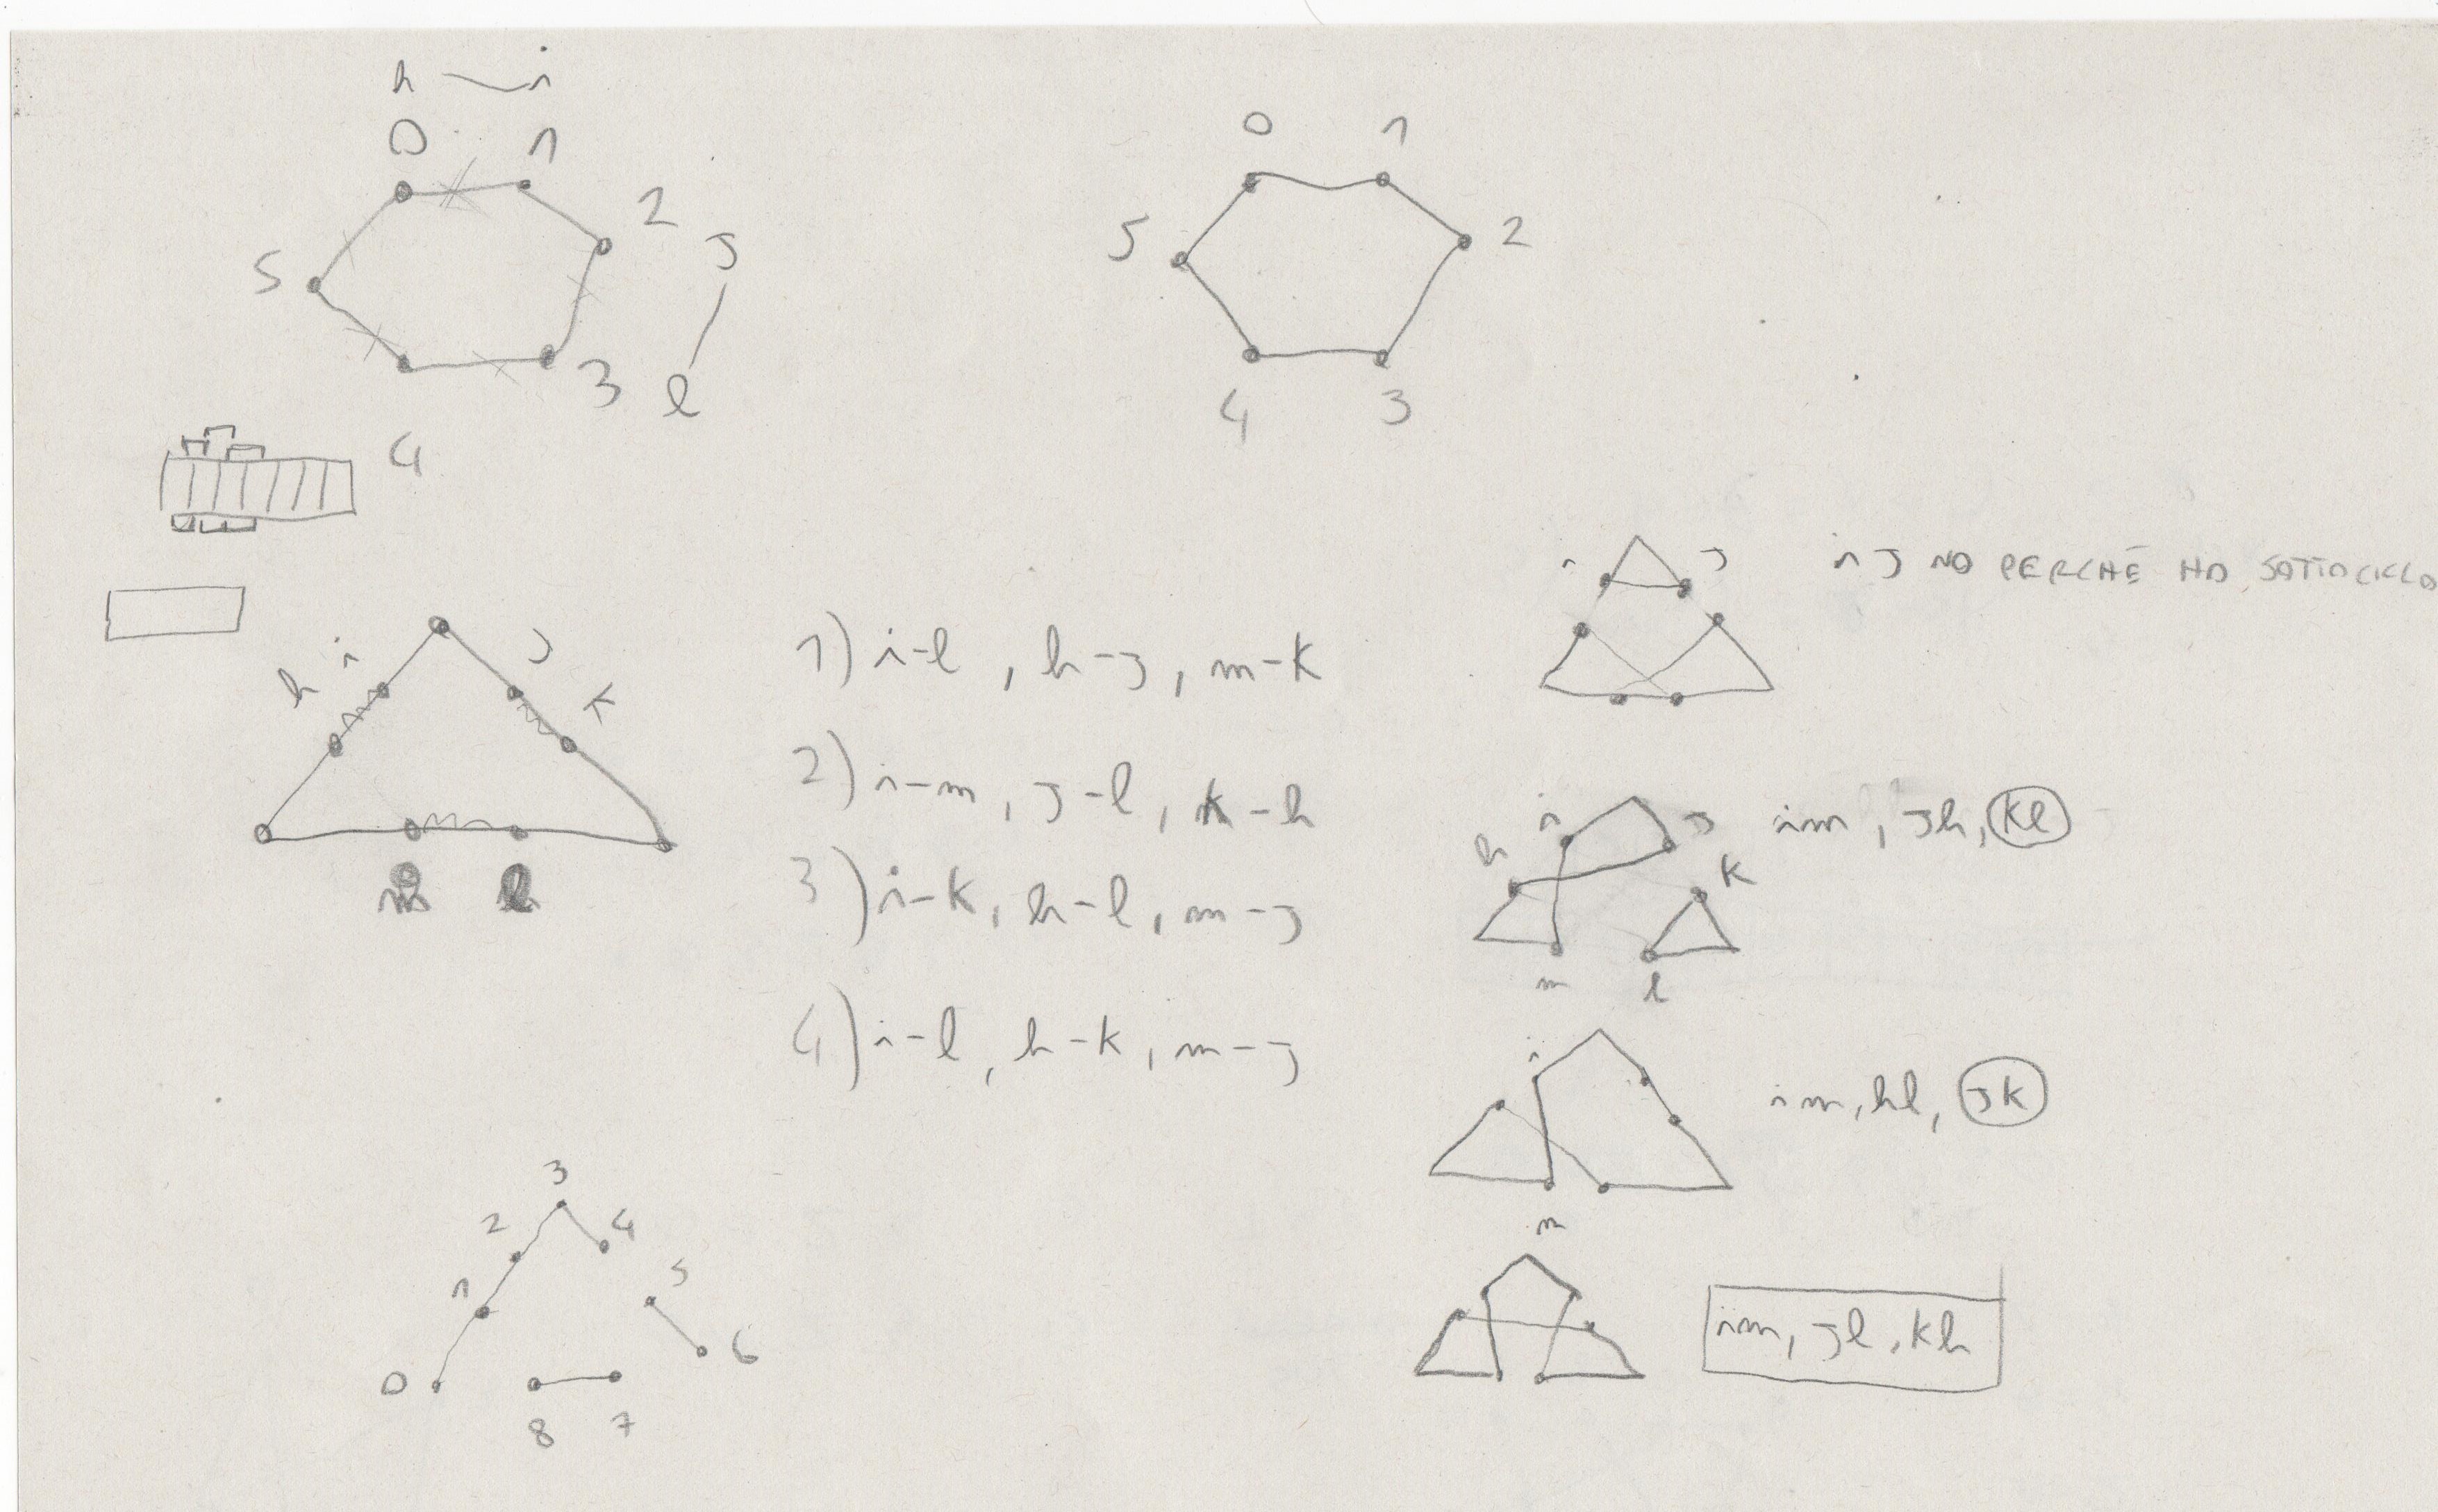 h i
0 1
2
5
J
3 l
4
0 1
5 2
4 3
i J
h K
m l
1) i-l, h-J, m-K
2) i-m, J-l, K-h
3) i-K, h-l, m-J
4) i-l, h-K, m-J
i J
iJ NO PERCHÉ HO SOTTOCICLO
i J
h K
m l
im, Jh, Kl
i
m
im, hl, JK
im, Jl, Kh
3
2 4
1 5
0 6
8 7